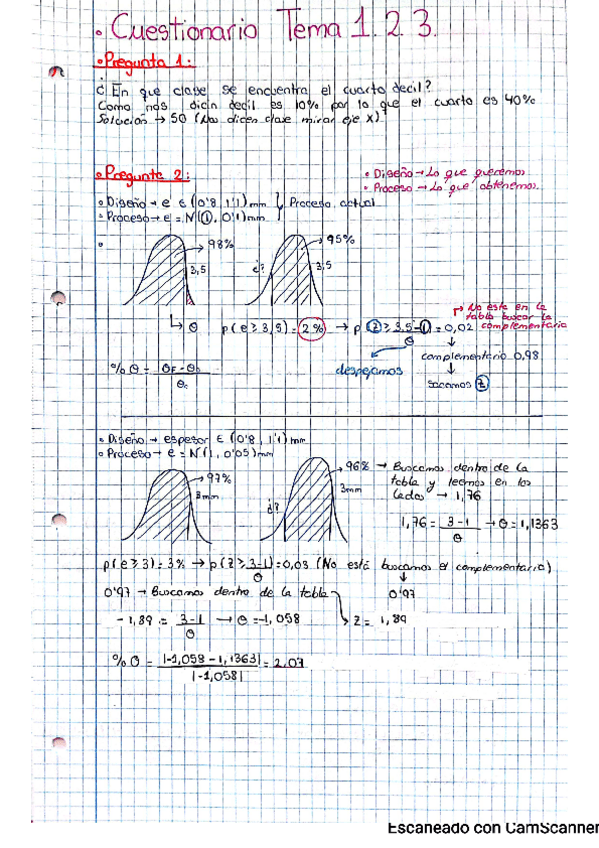 • Cuestionario Tema 1.2.3.
• Pregunta 1:
¿ En que clase se encuentra el cuarto decil?
Como nos dicin decil es 10% por lo que el cuarto es 40%
Solución → 50 (Nos dicen clase mirar eje x)
• Pregunta 2:
• Diseño → Lo que queremos
• Proceso → Lo que obtenemos.
• Diseño → e ∈ (0'8, 1'1) mm } Proceso actual
• Proceso → e = N(1, 0'1) mm
→ 98%
3,5
¿?
→ 95%
3,5
↳ θ
p(e ≥ 3,5) = 2% → p(z ≥ (3,5-1)/θ) = 0,02
→ No este en la
tabla buscar la
complementaria
despejamos
complementario 0,98
↓
sacamos z
%θ = (θF - θ)/θ
• Diseño → espesor ∈ (0'8, 1'1) mm
• Proceso → e = N(1, 0'05) mm
→ 97%
3mm
¿?
→ 96% → Buscamos dentro de la
tabla y leemos en los
lados → 1,76
3mm
1,76 = (3-1)/θ → θ = 1,1363
p(e ≥ 3) = 3% → p(z ≥ (3-1)/θ) = 0,03 (No está buscamos el complementario)
↓
0'97 → Buscamos dentro de la tabla
0'97
- 1,89 = (3-1)/θ → θ = -1,058
z = 1,89
%θ = |-1,058 - 1,1363| / |-1,058| = 2,07
Escaneado con CamScanner